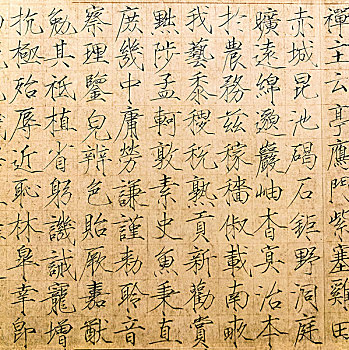 禪主云亭鴈門紫塞雞田
赤城昆池碣石鉅野洞庭
曠遠綿邈巖岫杳冥治本
於農務茲稼穡俶載南畝
我藝黍稷稅熟貢新勸賞
黜陟孟軻敦素史魚秉直
庶幾中庸勞謙謹勅聆音
察理鑒皃辨色貽厥嘉猷
勉其祗植省躬譏誡寵增
抗極殆辱近恥林皋幸即